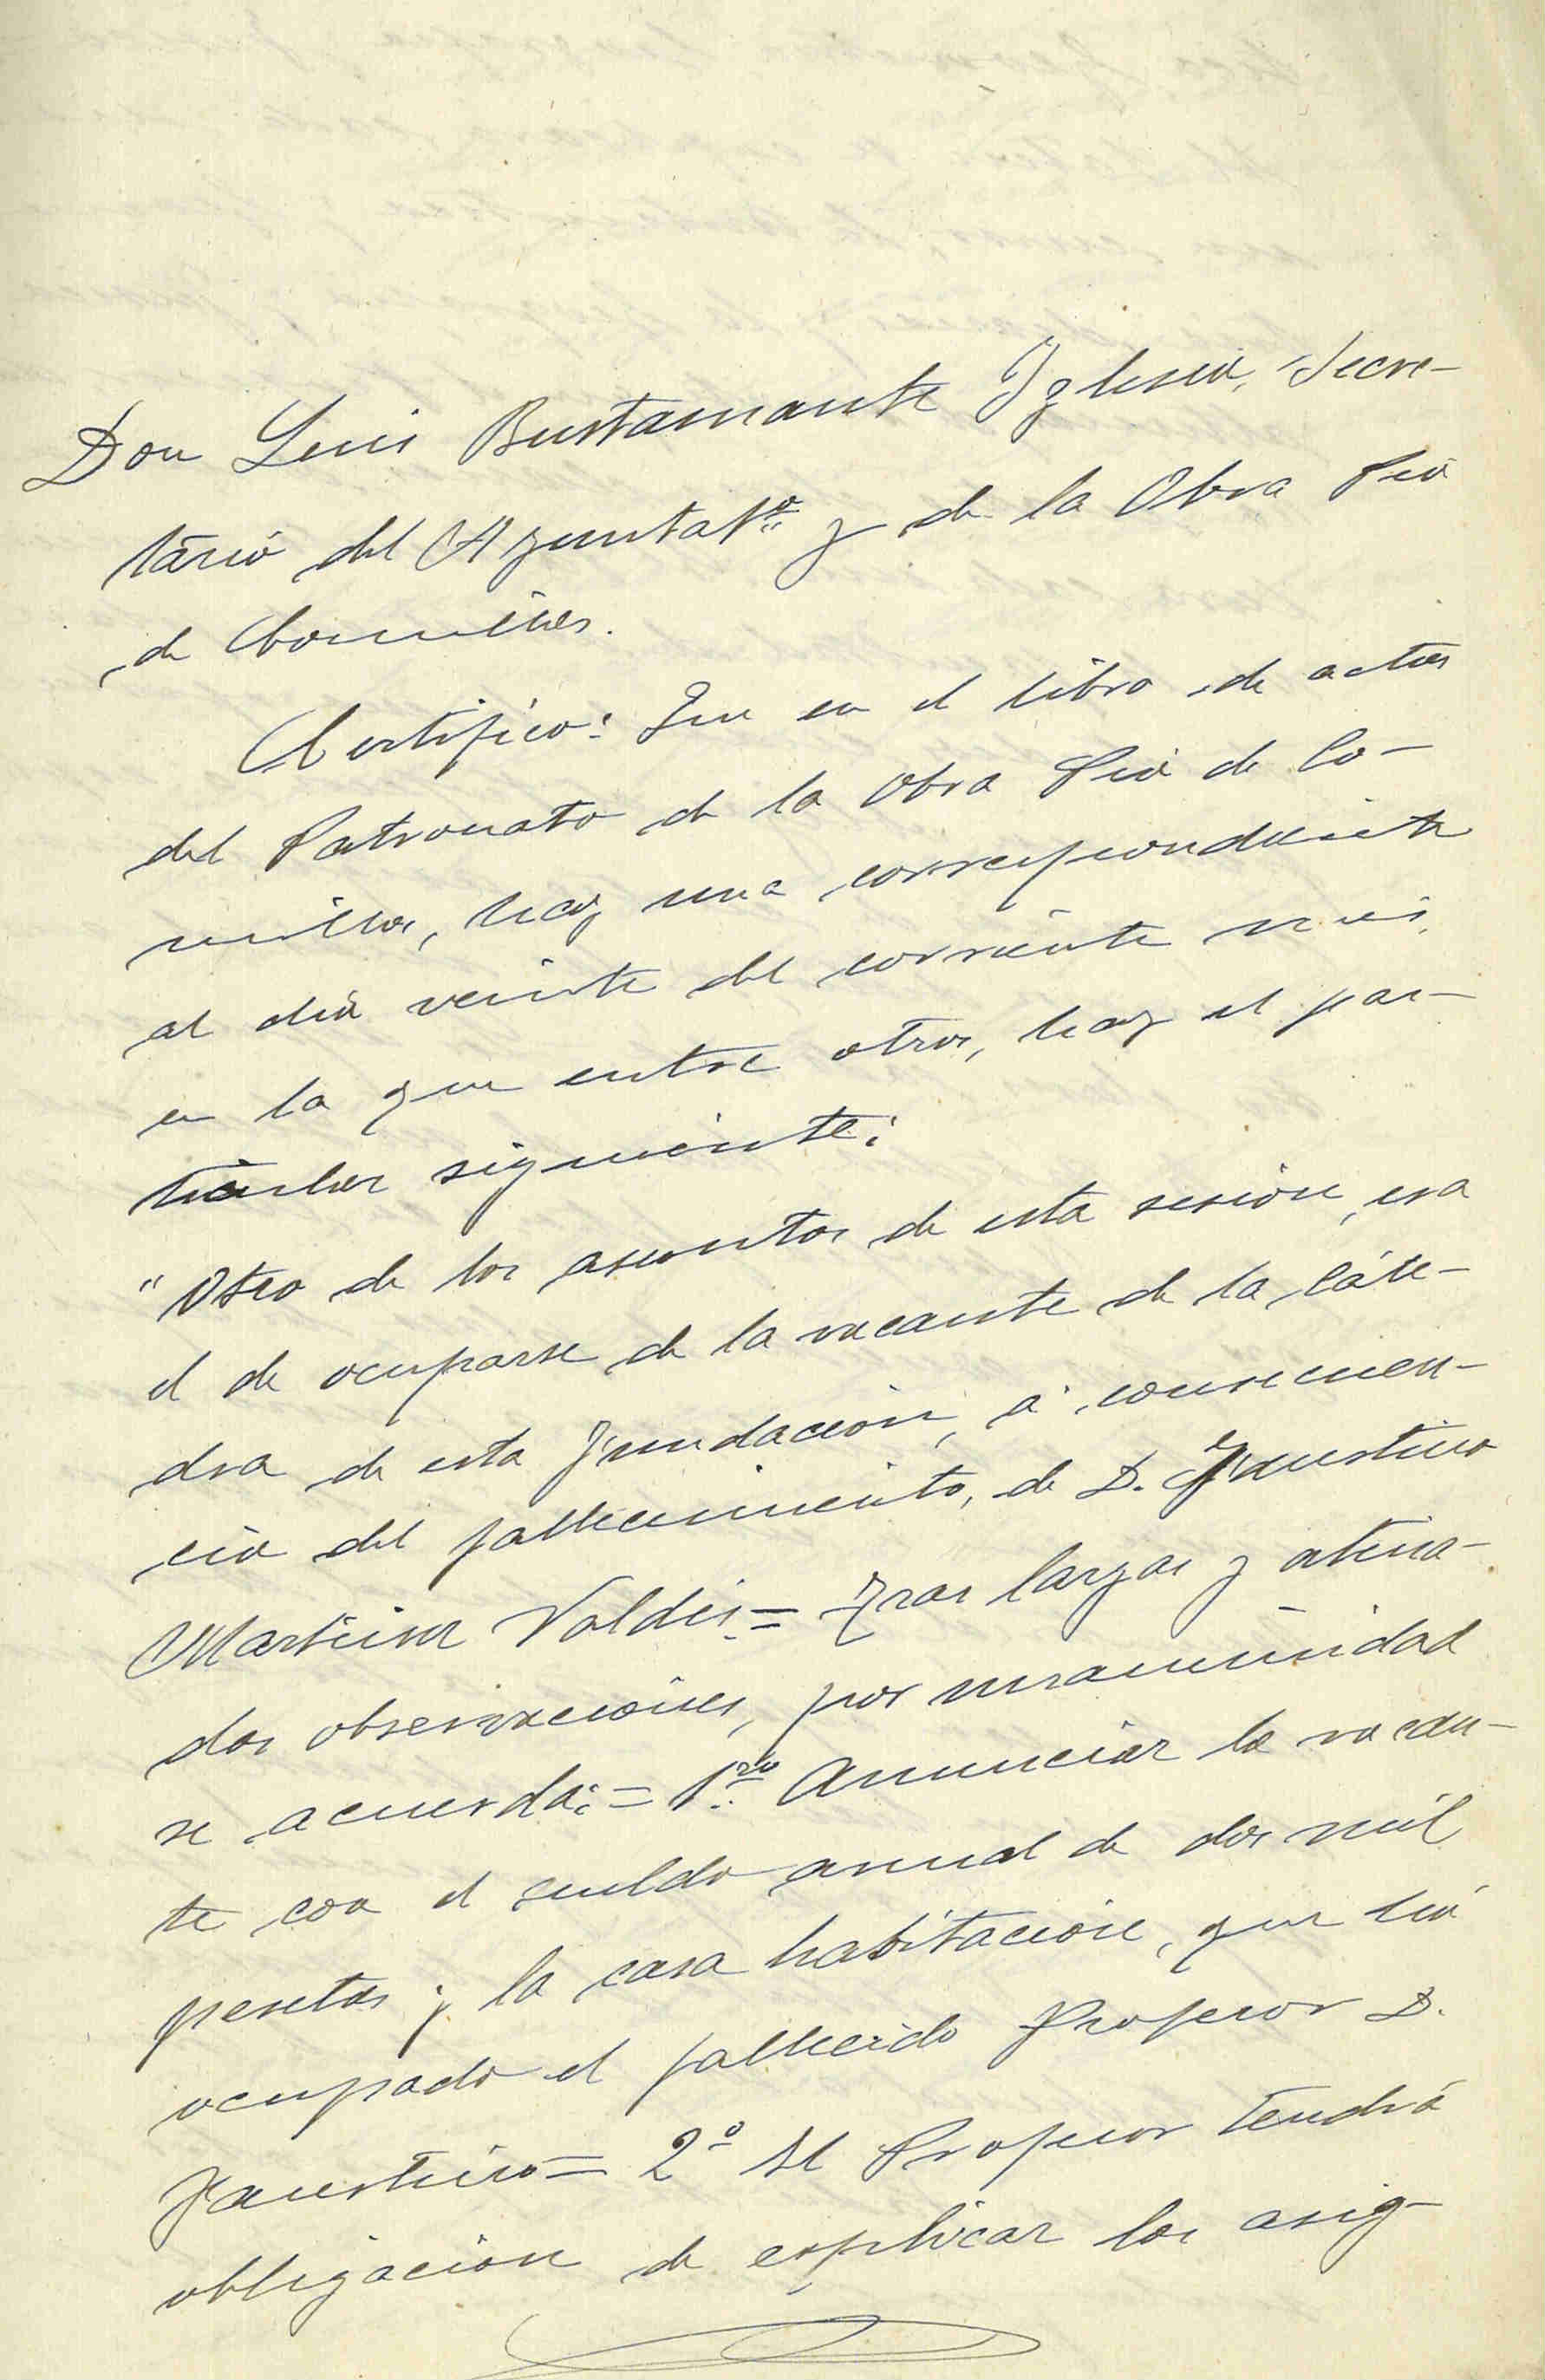 Don Luis Bustamante Iglesia, Secre-
tario del Ayuntatº y de la Obra Pia
de Comillas.
Certifico: Que en el libro de actas
del Patronato de la Obra Pia de Co-
millas, hay una correspondiente
al dia veinte del corriente mes,
en la que entre otros, hay el par-
ticular siguiente:
"Otro de los asuntos de esta sesión, era
el de ocuparse de la vacante de la Cáte-
dra de esta Fundación, á consecuen-
cia del fallecimiento, de D. Faustino
Martinez Valdés = Tras largas y atina-
das observaciones, por unanimidad
se acuerda: = 1ro Anunciar la vacan-
te con el sueldo anual de dos mil
pesetas y la casa habitación, que há
ocupado el fallecido Profesor D.
Faustino = 2º El Profesor tendrá
obligacion de esplicar las asig-